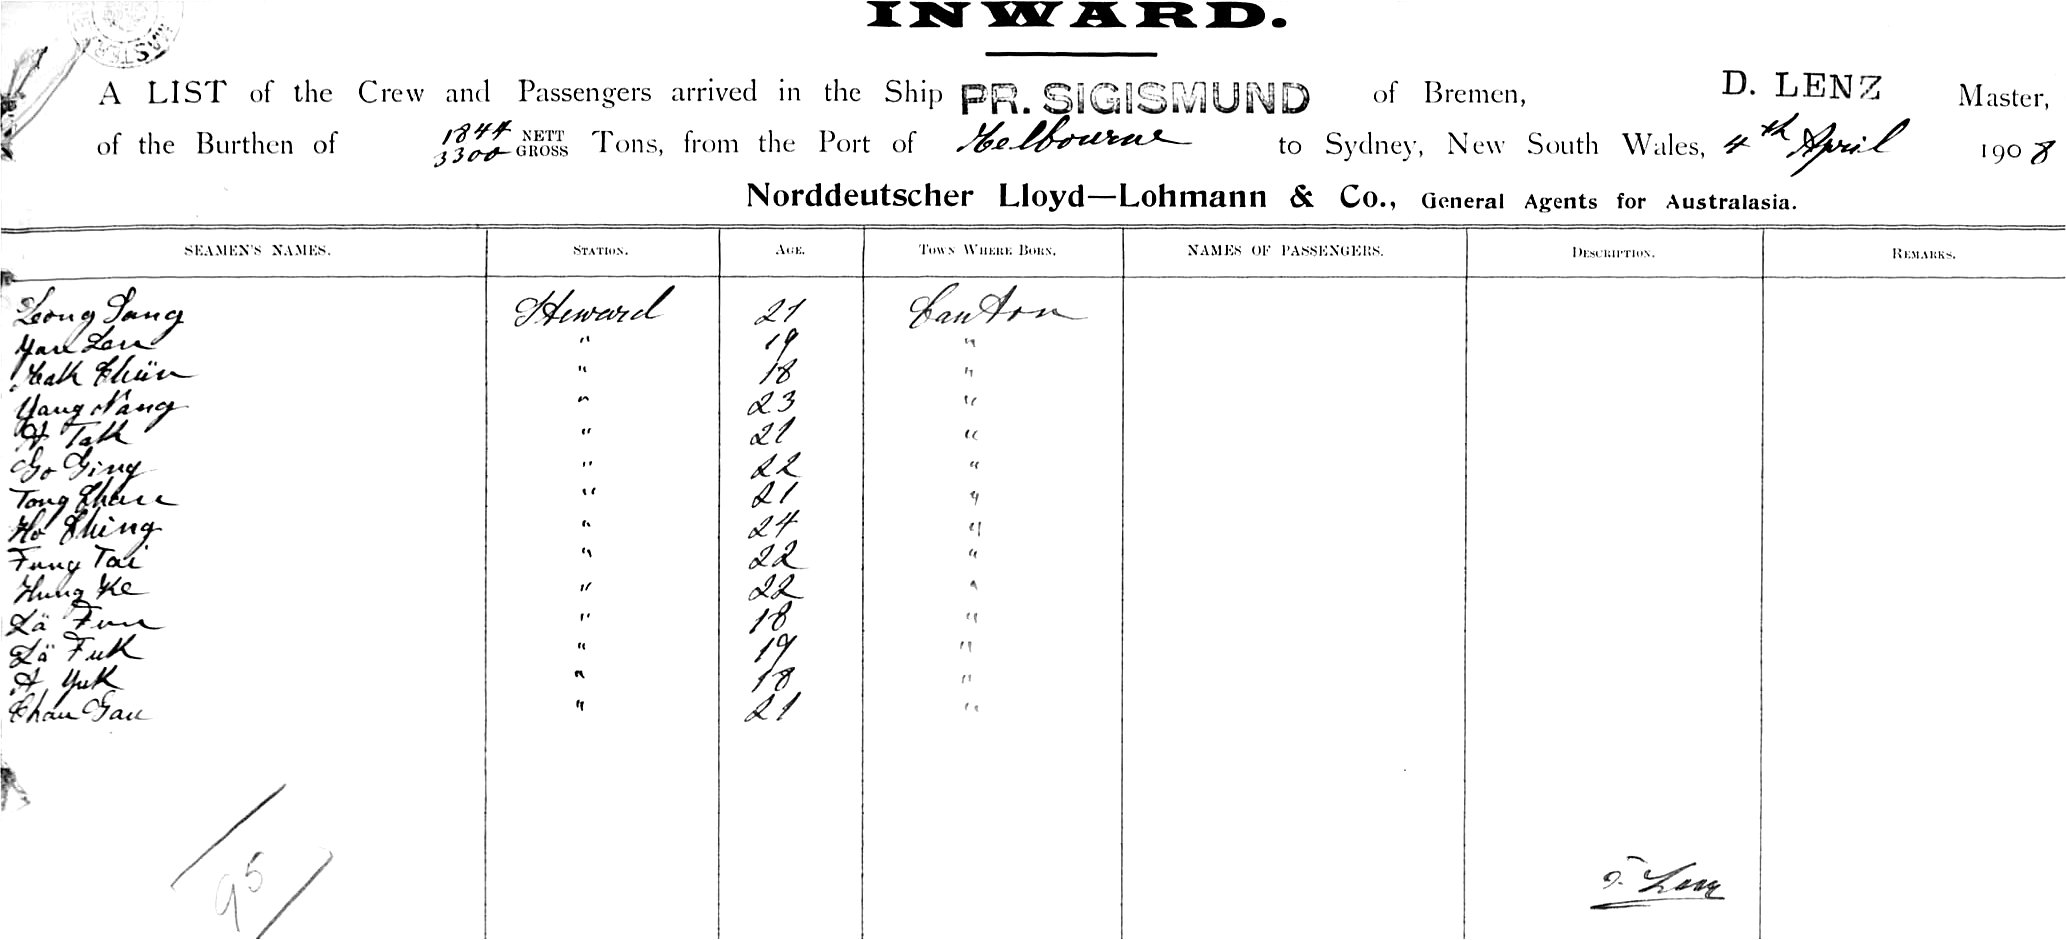 INWARD.
A LIST of the Crew and Passengers arrived in the Ship PR. SIGISMUND of Bremen, D. LENZ Master,
of the Burthen of 1844 NETT 3300 GROSS Tons, from the Port of Melbourne to Sydney, New South Wales, 4th April 1908
Norddeutscher Lloyd—Lohmann & Co., General Agents for Australasia.
SEAMEN'S NAMES. STATION. AGE. TOWN WHERE BORN. NAMES OF PASSENGERS. DESCRIPTION. REMARKS.
Leong Sang Steward 21 Canton
Yau Len " 19 "
Hak Chün " 18 "
Yang Nang " 23 "
A Tak " 21 "
Go Ging " 22 "
Tong Chau " 21 "
Ho Ching " 24 "
Fung Tai " 22 "
Hung Ke " 22 "
Lä Fun " 18 "
Lä Fuk " 19 "
A Yuk " 18 "
Chau Gau " 21 "
95
Lenz